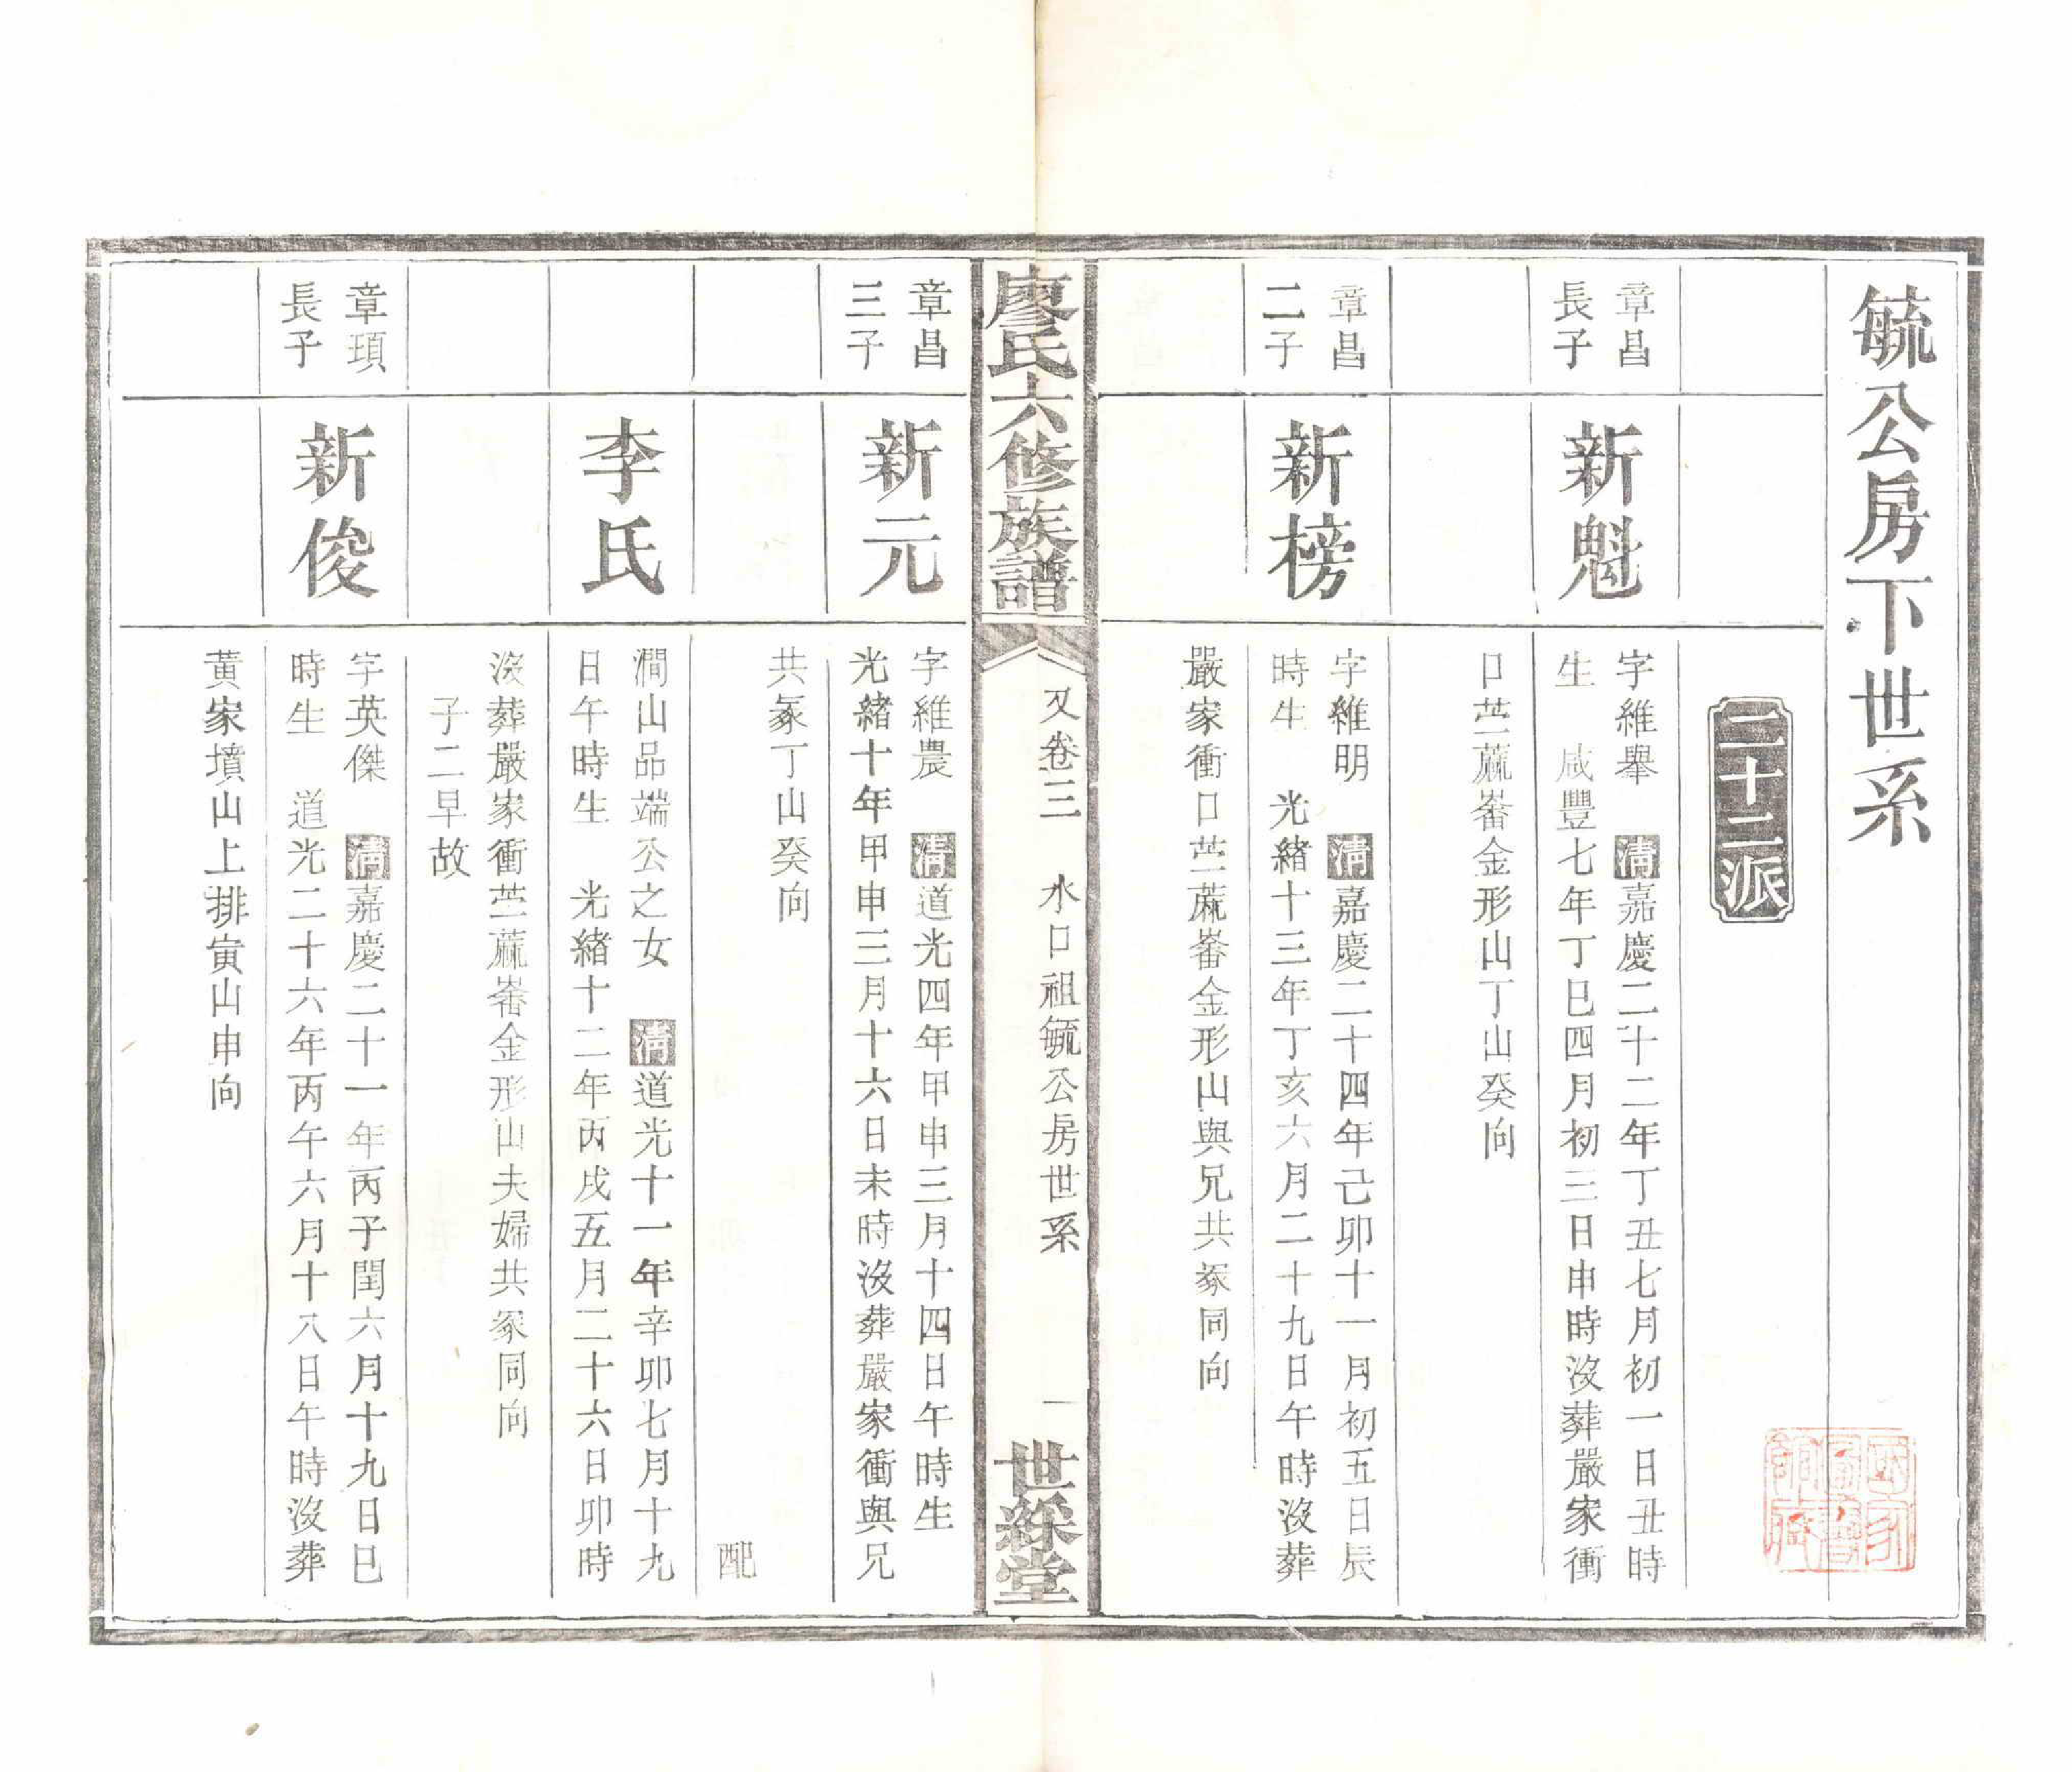 毓公房下世系
二十二派
章昌
長子
新魁
字維舉　清嘉慶二十二年丁丑七月初一日丑時
生　咸豐七年丁巳四月初三日申時沒葬嚴家衝
口苎蔴畨金形山丁山癸向
章昌
二子
新榜
字維明　清嘉慶二十四年己卯十一月初五日辰
時生　光緒十三年丁亥六月二十九日午時沒葬
嚴家衝口苎蔴畨金形山與兄共冢同向
廖氏六修族譜
又卷三　水口祖毓公房世系
一
世綵堂
章昌
三子
新元
字維農　清道光四年甲申三月十四日午時生
光緒十年甲申三月十六日未時沒葬嚴家衝與兄
共冢丁山癸向
配
李氏
澗山品端公之女　清道光十一年辛卯七月十九
日午時生　光緒十二年丙戌五月二十六日卯時
沒葬嚴家衝苎蔴畨金形山夫婦共冢同向
子二早故
章頊
長子
新俊
字英傑　清嘉慶二十一年丙子閏六月十九日巳
時生　道光二十六年丙午六月十八日午時沒葬
黃家墳山上排寅山申向
國家
圖書
館藏